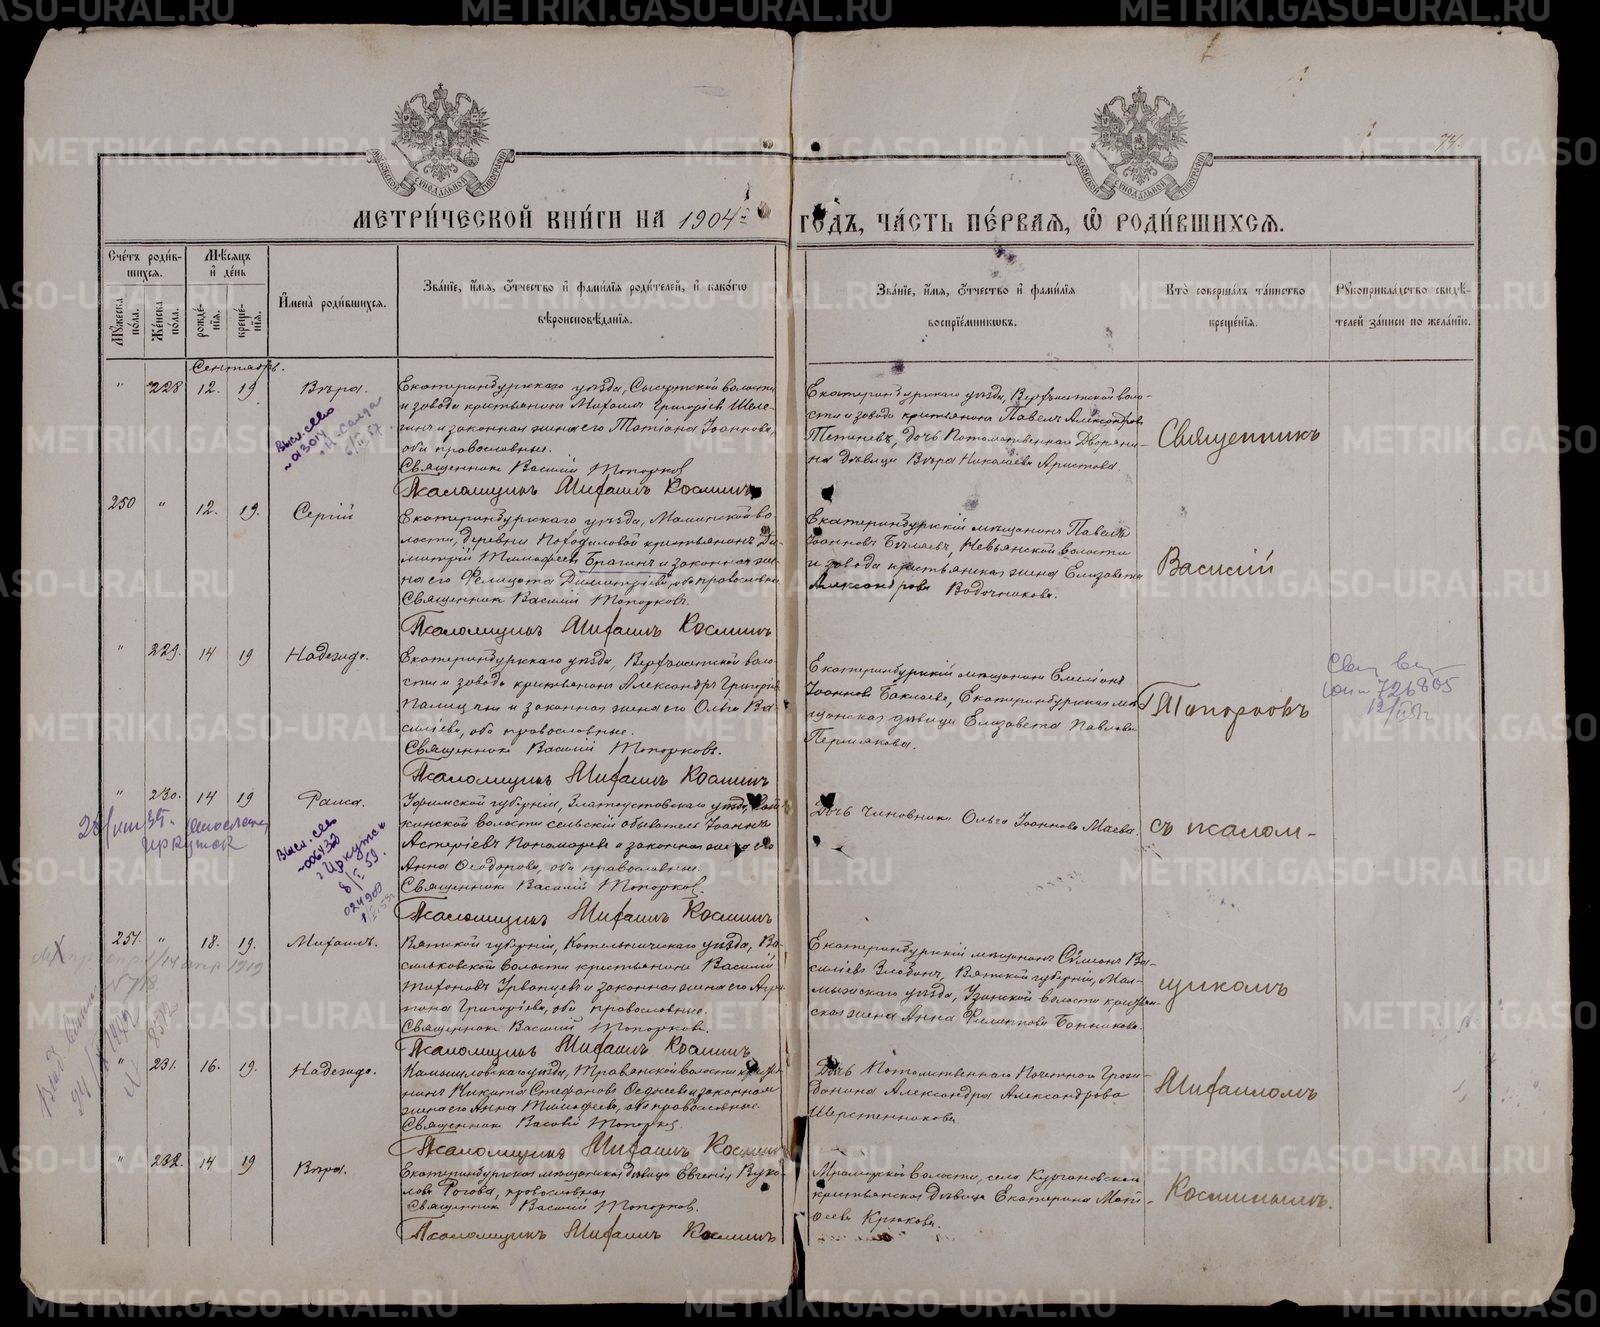 МЕТРИ́ЧЕСКОЙ КНИ́ГИ НА 1904й ГОДЪ, ЧА́СТЬ ПЕ́РВАЯ, Ѽ РОДИ́ВШИХСЯ.
МОСКОВСКОЙ СѴНОДАЛЬНОЙ ТИПОГРАФІИ
МОСКОВСКОЙ СѴНОДАЛЬНОЙ ТИПОГРАФІИ
74.
Сче́тъ роди́в-
шихся.
Му́жеска по́ла.
Же́нска по́ла.
Мѣ́сяцъ
и҆ де́нь
рожде́-
нїя.
креще́-
нїя.
И҆мена̀ роди́вшихся.
Зва́нїе, и҆́мя, ѻ҆́тчество и҆ фами́лїя роди́телей, и҆ како́гѡ
вѣроисповѣ́данїя.
Зва́нїе, и҆́мя, ѻ҆́тчество и҆ фами́лїя
воспрїе́мниковъ.
Кто̀ соверша́лъ та́инство
креще́нїя.
Рꙋкоприкла́дство свидѣ́-
телей за́писи по жела́нїю.
Сентябрь.
" 228 12. 19 Вѣра.
Екатеринбургскаго уѣзда, Сысертской волости
и завода крестьянинъ Михаилъ Григоріевъ Шеле-
гинъ и законная жена его Татіана Іоаннова,
оба православные.
Священникъ Василій Топорковъ
Псаломщикъ Михаилъ Косминъ
Екатеринбургскаго уѣзда, Верхъисетской воло-
сти и завода крестьянинъ Павелъ Александровъ
Тетеневъ, дочь Потомственнаго Дворяни-
на дѣвица Вѣра Николаева Аристова.
Священникъ
250 " 12. 19. Сергій
Екатеринбургскаго уѣзда, Маминской во-
лости, деревни крестьянинъ Ди-
митрій Тимофеевъ Брагинъ и законная же-
на его Фелицата Димитріева, оба православные
Священникъ Василій Топорковъ.
Псаломщикъ Михаилъ Косминъ
Екатеринбургскій мѣщанинъ Павелъ
Іоанновъ Бѣляевъ, Невьянской волости
и завода крестьянская жена Елизавета
Александрова Водочникова.
Василій
" 229. 14 19 Надежда.
Екатеринбургскаго уѣзда, Верхъисетской воло-
сти и завода крестьянинъ Александръ Григоріевъ
Палицынъ и законная жена его Ольга Ва-
сильева, оба православные.
Священникъ Василій Топорковъ.
Псаломщикъ Михаилъ Косминъ
Екатеринбургскій мѣщанинъ Емеліанъ
Іоанновъ Баклаевъ, Екатеринбургская мѣ-
щанская дѣвица Елизавета Павлова
Пермякова.
Топорковъ
726805
" 230. 14 19 Раиса.
Уфимской губерніи, Златоустовскаго уѣзда,
кинской волости сельскій обыватель Іоаннъ
Астеріевъ Пономаревъ и законная жена его
Анна Ѳеодорова, оба православные.
Священникъ Василій Топорковъ.
Псаломщикъ Михаилъ Косминъ
Дочь чиновника Ольга Іоаннова Маева.
съ псалом-
Высл. св-во
г. Иркутск
251. " 18. 19. Михаилъ.
Вятской губерніи, Котельничскаго уѣзда, Ва-
сильковской волости крестьянинъ Василій
Тихоновъ Урванцевъ и законная жена его Агри-
пина Григоріева, оба православные.
Священникъ Василій Топорковъ.
Псаломщикъ Михаилъ Косминъ
Екатеринбургскій мѣщанинъ Симеонъ Ва-
силіевъ Злобинъ, Вятской губерніи, Мал-
мыжскаго уѣзда, Узинской волости крестьян-
ская жена Анна Филиппова Банникова.
щикомъ
" 231. 16. 19. Надежда.
Камышловскаго уѣзда, Травянской волости крестья-
нинъ Никита Стефановъ и законная
жена его Анна Тимофеева, оба православные.
Священникъ Василій Топорковъ.
Псаломщикъ Михаилъ Косминъ
Дочь Потомственнаго Почетнаго Граж-
данина Александра Александрова
Шерстенникова.
Михаиломъ
" 232. 14 19 Вѣра.
Екатеринбургская мѣщанская дѣвица Евгенія Вуко-
лова Рогова, православная
Священникъ Василій Топорковъ.
Псаломщикъ Михаилъ Косминъ
Мраморской волости, села Кургановскаго
крестьянская дѣвица Екатерина Мат-
ѳеева Крюкова.
Косминымъ.